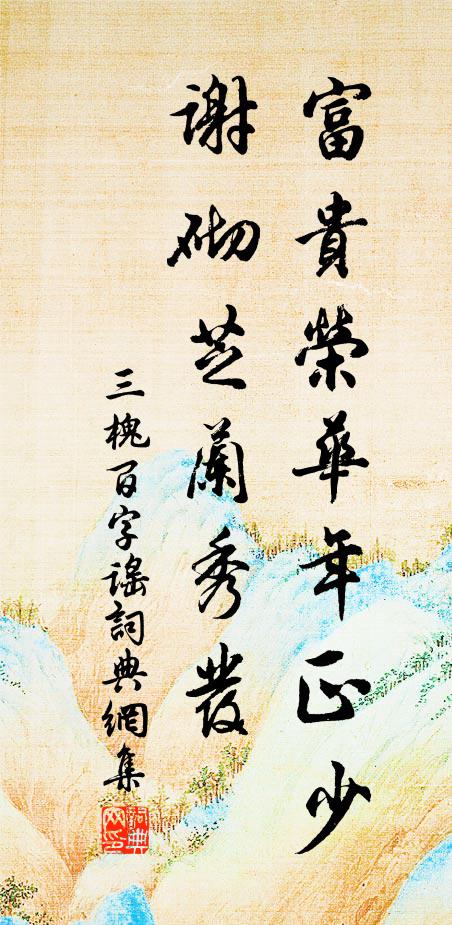 富貴榮華年正少
謝砌芝蘭秀發
三槐百字謠詞典網集
詞典
网印